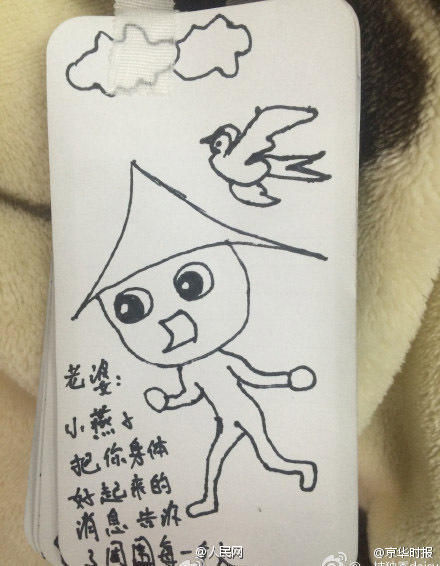 老婆：
小燕子
把你身体
好起来的
消息告诉
了周围每一个人
@人民网
@京华时报